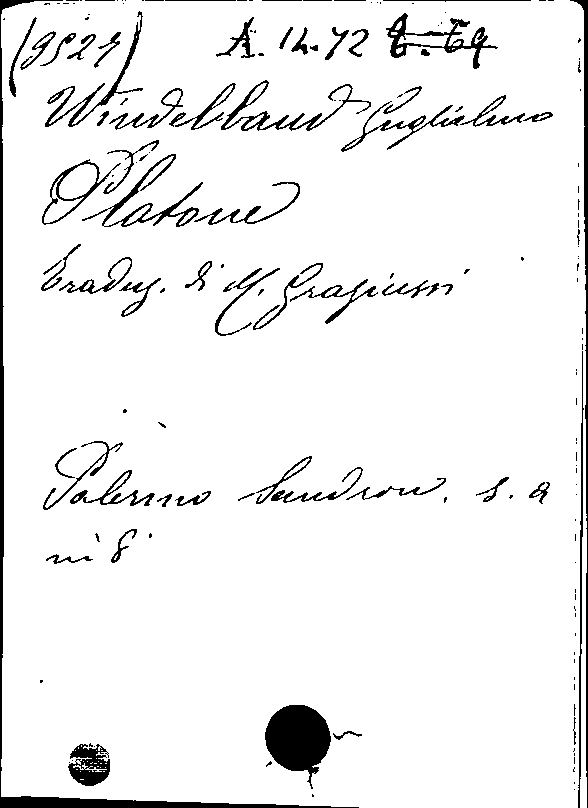 (9527) A. 14.72
Windelband Guglielmo
Platone
Traduz. di M. Graziussi
Palermo Sandron. s. a
in 8°